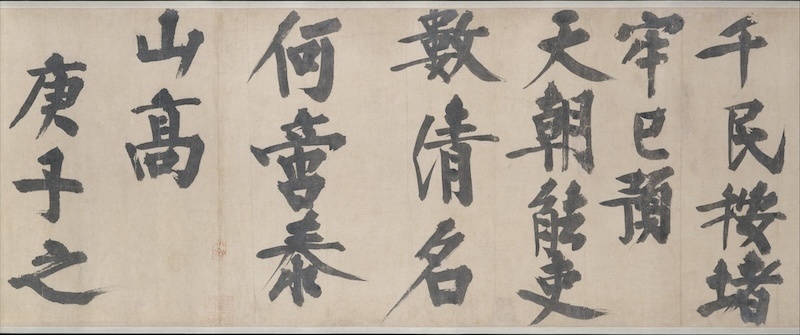 千民按堵
牢已預
天朝能吏
數清名
何啻泰
山高
庚子之